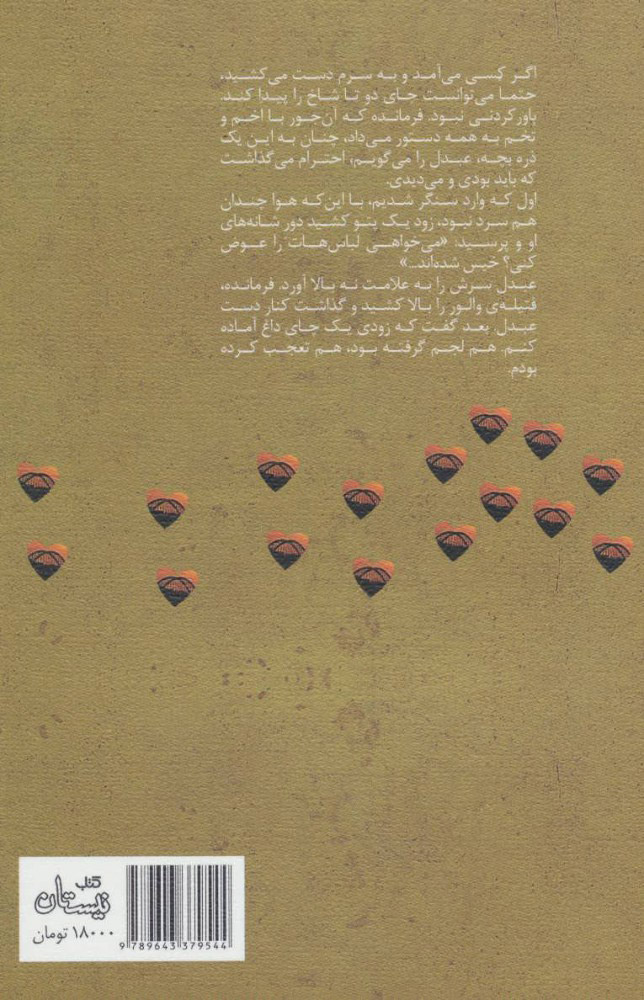 اگر کسی می‌آمد و به سرم دست می‌کشید،
حتما می‌توانست جای دو تا شاخ را پیدا کند.
باورکردنی نبود. فرمانده که آن‌جور با اخم و
تخم به همه دستور می‌داد، چنان به این یک
ذره بچه، عبدل را می‌گویم، احترام می‌گذاشت
که باید بودی و می‌دیدی.
اول که وارد سنگر شدیم، با این‌که هوا چندان
هم سرد نبود، زود یک پتو کشید دور شانه‌های
او و پرسید: «می‌خواهی لباس‌هات را عوض
کنی؟ خیس شده‌اند...»
عبدل سرش را به علامت نه بالا آورد. فرمانده،
فتیله‌ی والور را بالا کشید و گذاشت کنار دست
عبدل. بعد گفت که زودی یک چای داغ آماده
کنم. هم لجم گرفته بود، هم تعجب کرده
بودم.
کتاب
نیستان
۱۸۰۰۰ تومان
9 789643 379544